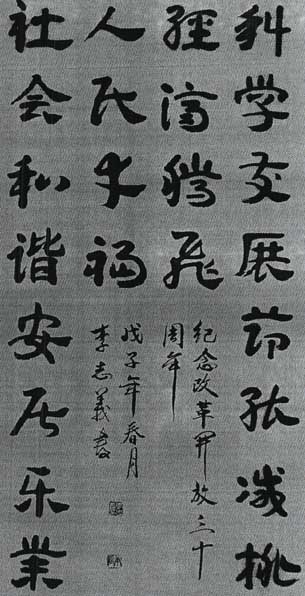 科学发展节能减排
經济腾飛
人民幸福
社会和谐安居乐業
纪念改革開放三十
周年
戊子年春月
李志義书